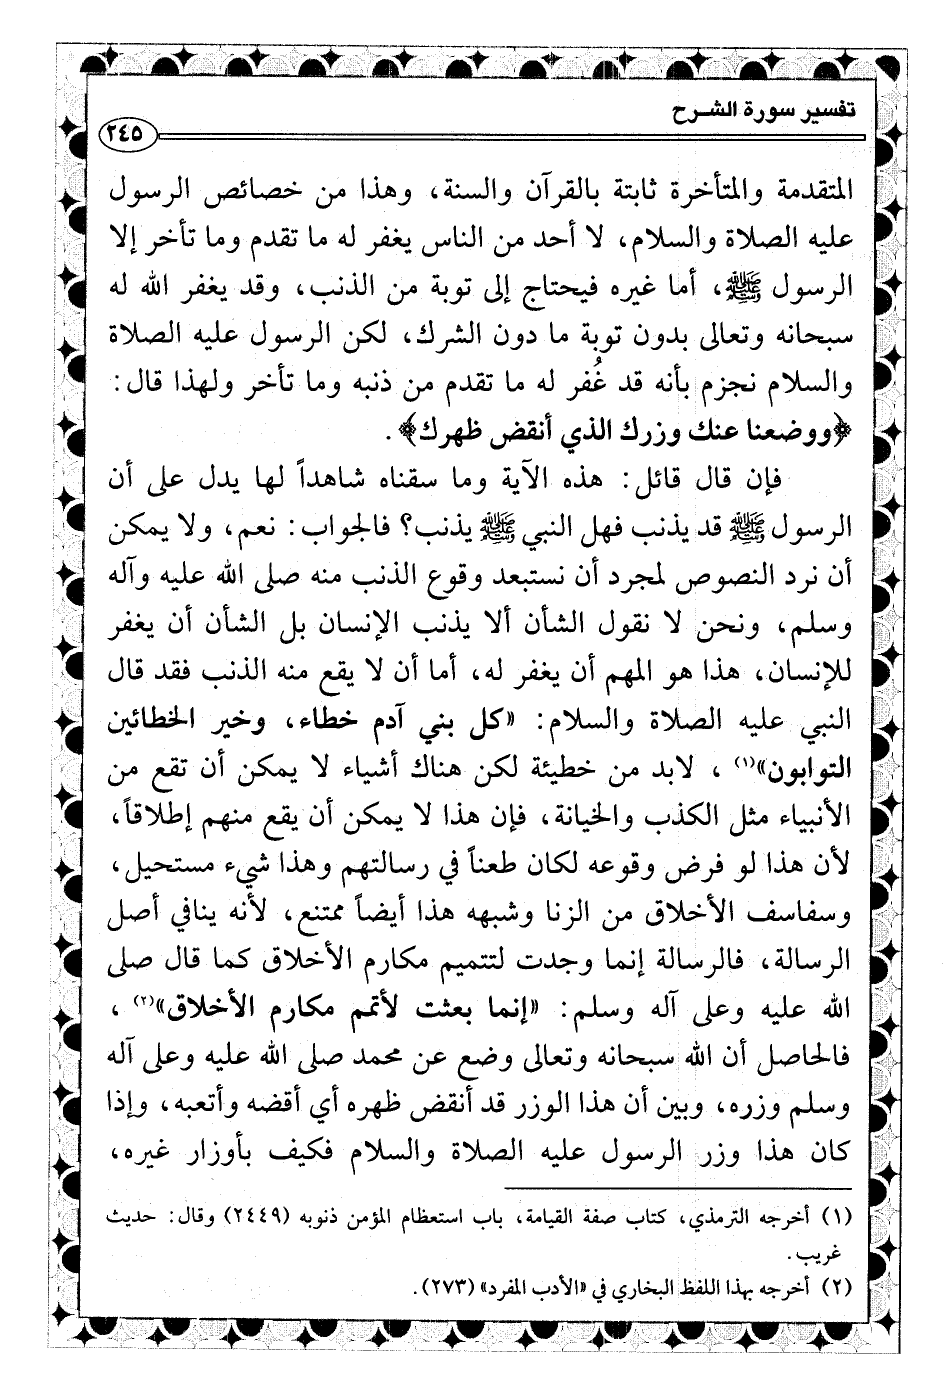 تفسير سورة الشرح
٢٤٥
المتقدمة والمتأخرة ثابتة بالقرآن والسنة، وهذا من خصائص الرسول
عليه الصلاة والسلام، لا أحد من الناس يغفر له ما تقدم وما تأخر إلا
الرسول ﷺ، أما غيره فيحتاج إلى توبة من الذنب، وقد يغفر الله له
سبحانه وتعالى بدون توبة ما دون الشرك، لكن الرسول عليه الصلاة
والسلام نجزم بأنه قد غُفر له ما تقدم من ذنبه وما تأخر ولهذا قال:
﴿ووضعنا عنك وزرك الذي أنقض ظهرك﴾.
فإن قال قائل: هذه الآية وما سقناه شاهداً لها يدل على أن
الرسول ﷺ قد يذنب فهل النبي ﷺ يذنب؟ فالجواب: نعم، ولا يمكن
أن نرد النصوص لمجرد أن نستبعد وقوع الذنب منه صلى الله عليه وآله
وسلم، ونحن لا نقول الشأن ألا يذنب الإنسان بل الشأن أن يغفر
للإنسان، هذا هو المهم أن يغفر له، أما أن لا يقع منه الذنب فقد قال
النبي عليه الصلاة والسلام: «كل بني آدم خطاء، وخير الخطائين
التوابون»(١)، لابد من خطيئة لكن هناك أشياء لا يمكن أن تقع من
الأنبياء مثل الكذب والخيانة، فإن هذا لا يمكن أن يقع منهم إطلاقاً،
لأن هذا لو فرض وقوعه لكان طعناً في رسالتهم وهذا شيء مستحيل،
وسفاسف الأخلاق من الزنا وشبهه هذا أيضاً ممتنع، لأنه ينافي أصل
الرسالة، فالرسالة إنما وجدت لتتميم مكارم الأخلاق كما قال صلى
الله عليه وعلى آله وسلم: «إنما بعثت لأتمم مكارم الأخلاق»(٢)،
فالحاصل أن الله سبحانه وتعالى وضع عن محمد صلى الله عليه وعلى آله
وسلم وزره، وبين أن هذا الوزر قد أنقض ظهره أي أقضه وأتعبه، وإذا
كان هذا وزر الرسول عليه الصلاة والسلام فكيف بأوزار غيره،
(١) أخرجه الترمذي، كتاب صفة القيامة، باب استعظام المؤمن ذنوبه (٢٤٤٩) وقال: حديث
غريب.
(٢) أخرجه بهذا اللفظ البخاري في «الأدب المفرد» (٢٧٣).